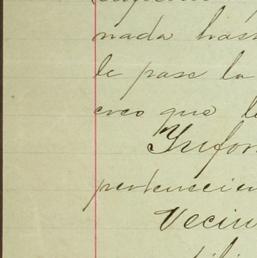 nada has
le pase la
creo que le
Infor
pertenecien
Vecin